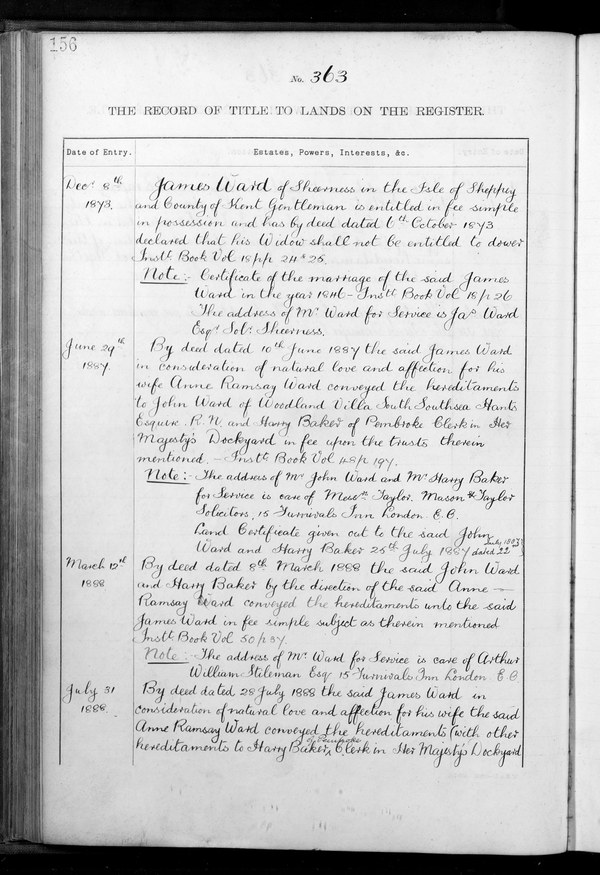 156
No. 363
THE RECORD OF TITLE TO LANDS ON THE REGISTER.
Date of Entry. Estates, Powers, Interests, &c.
Decr. 8th 1873. James Ward of Sheerness in the Isle of Sheppey
and County of Kent Gentleman is entitled in fee simple
in possession and has by deed dated 6th October 1873
declared that his Widow shall not be entitled to dower
Instt. Book Vol 18 p/p 24 & 25.
Note:- Certificate of the marriage of the said James
Ward in the year 1846 - Instt. Book Vol 18 p 26
The address of Mr. Ward for Service is Jas. Ward
Esqr. Solr. Sheerness.
June 29th 1887. By deed dated 10th June 1887 the said James Ward
in consideration of natural love and affection for his
wife Anne Ramsay Ward conveyed the hereditaments
to John Ward of Woodland Villa South Southsea Hants
Esquire R.N. and Harry Baker of Pembroke Clerk in Her
Majesty's Dockyard in fee upon the trusts therein
mentioned. - Instt. Book Vol 48 p 197.
Note:- The address of Mr John Ward and Mr Harry Baker
for Service is care of Messrs. Taylor. Mason & Taylor
Solicitors, 15 Furnivals Inn London E.C.
Land Certificate given out to the said John
Ward and Harry Baker 25th July 1887 dated 22 July
March 12th 1888 By deed dated 8th March 1888 the said John Ward
and Harry Baker by the direction of the said Anne -
Ramsay Ward conveyed the hereditaments unto the said
James Ward in fee simple subject as therein mentioned
Instt. Book Vol 50 p 37.
Note:- The address of Mr. Ward for Service is care of Arthur
William Stileman Esq. 15 Furnivals Inn London E.C.
July 31 1888. By deed dated 28 July 1888 the said James Ward in
consideration of natural love and affection for his wife the said
Anne Ramsay Ward conveyed the hereditaments (with other
hereditaments to Harry Baker of Pembroke Clerk in Her Majesty's Dockyard